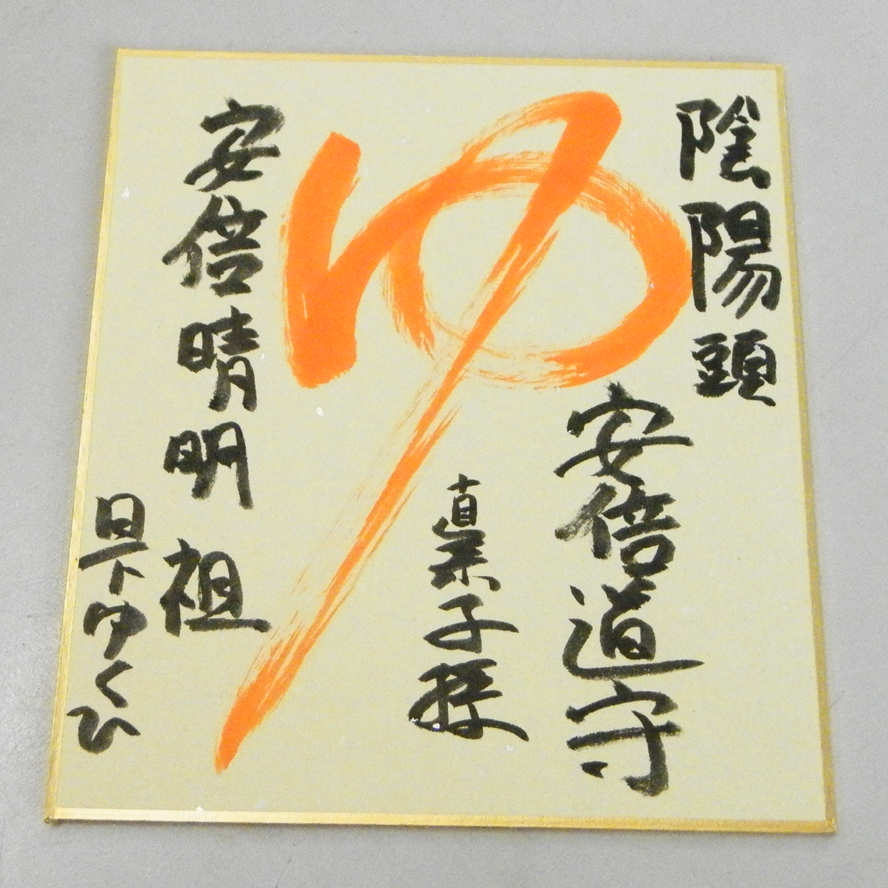 陰陽頭
安倍道守
直美子様
ゆ
安倍晴明 祖
日下ゆくひ